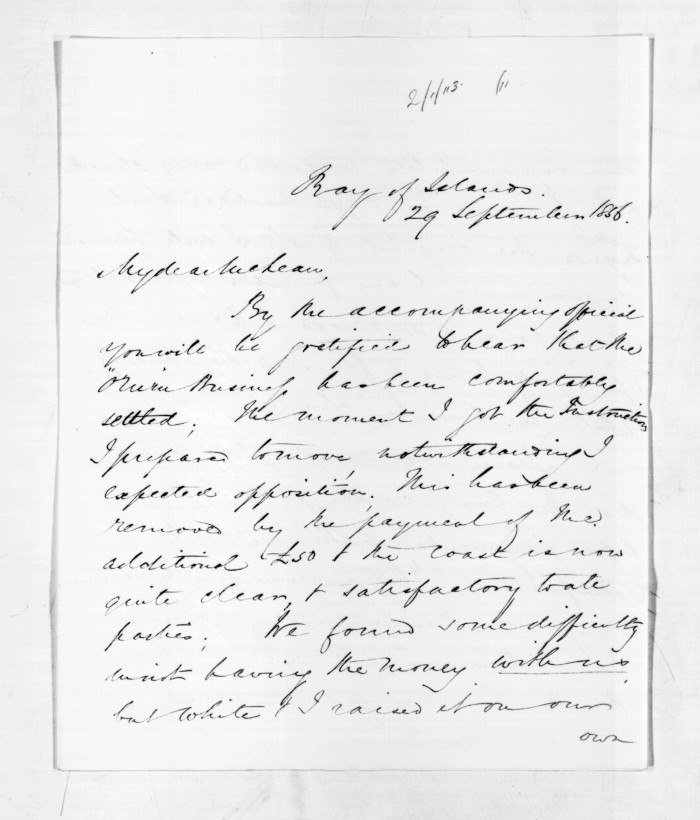 Bay of Islands.
29 September 1856.
My dear McLean,
By the accompanying official
you will be gratified to hear that the
"Oruru Business" has been comfortably
settled; The moment I got the Instructions
I prepared to move, notwithstanding I
expected opposition. This has been
removed by the payment of the
additional £50 & the coast is now
quite clear, & satisfactory to all
parties; We found some difficulty
in not having the money with us
but White & I raised it on our
own